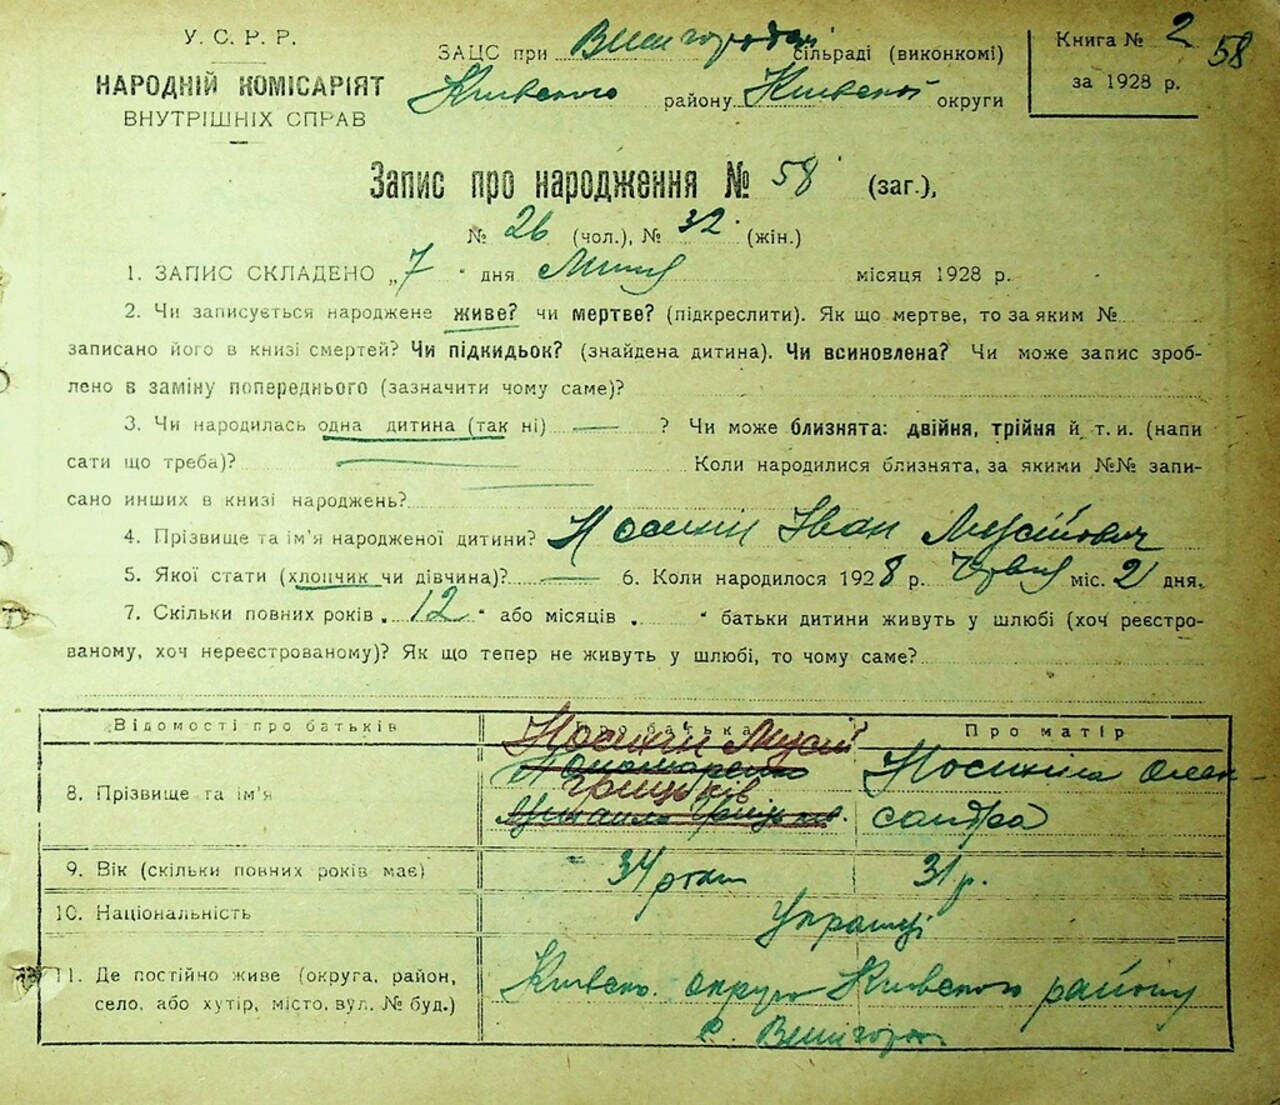 У. С. Р. Р.
НАРОДНІЙ КОМІСАРІЯТ
ВНУТРІШНІХ СПРАВ
ЗАЦС при Вишгородській сільраді (виконкомі)
Київського району Київської округи
Книга № 2
58
за 1928 р.
Запис про народження № 58 (заг.),
№ 26 (чол.), № 32 (жін.)
1. ЗАПИС СКЛАДЕНО „7 " дня Липня місяця 1928 р.
2. Чи записується народжене живе? чи мертве? (підкреслити). Як що мертве, то за яким №
записано його в книзі смертей? Чи підкидьок? (знайдена дитина). Чи всиновлена? Чи може запис зроб-
лено в заміну попереднього (зазначити чому саме)?
3. Чи народилась одна дитина (так ні) — ? Чи може близнята: двійня, трійня й т. и. (напи
сати що треба)? — Коли народилися близнята, за якими №№ запи-
сано инших в книзі народжень?
4. Прізвище та ім'я народженої дитини? Носикин Іван Мусійович
5. Якої стати (хлопчик чи дівчина)? — 6. Коли народилося 1928 р. Червня міс. 2 дня.
7. Скільки повних років „ 12 " або місяців „ " батьки дитини живуть у шлюбі (хоч реєстро-
ваному, хоч нереєстрованому)? Як що тепер не живуть у шлюбі, то чому саме?
Відомості про батьків Про батька Про матір
8. Прізвище та ім'я
Носикин Мусій
Пономаренко
Грицьків
Носикина Олек-
сандра
9. Вік (скільки повних років має) 34 роки 31 р.
10. Національність Українці
11. Де постійно живе (округа, район,
село, або хутір, місто, вул. № буд.)
Київськ. округа Київського району
с. Вишгород